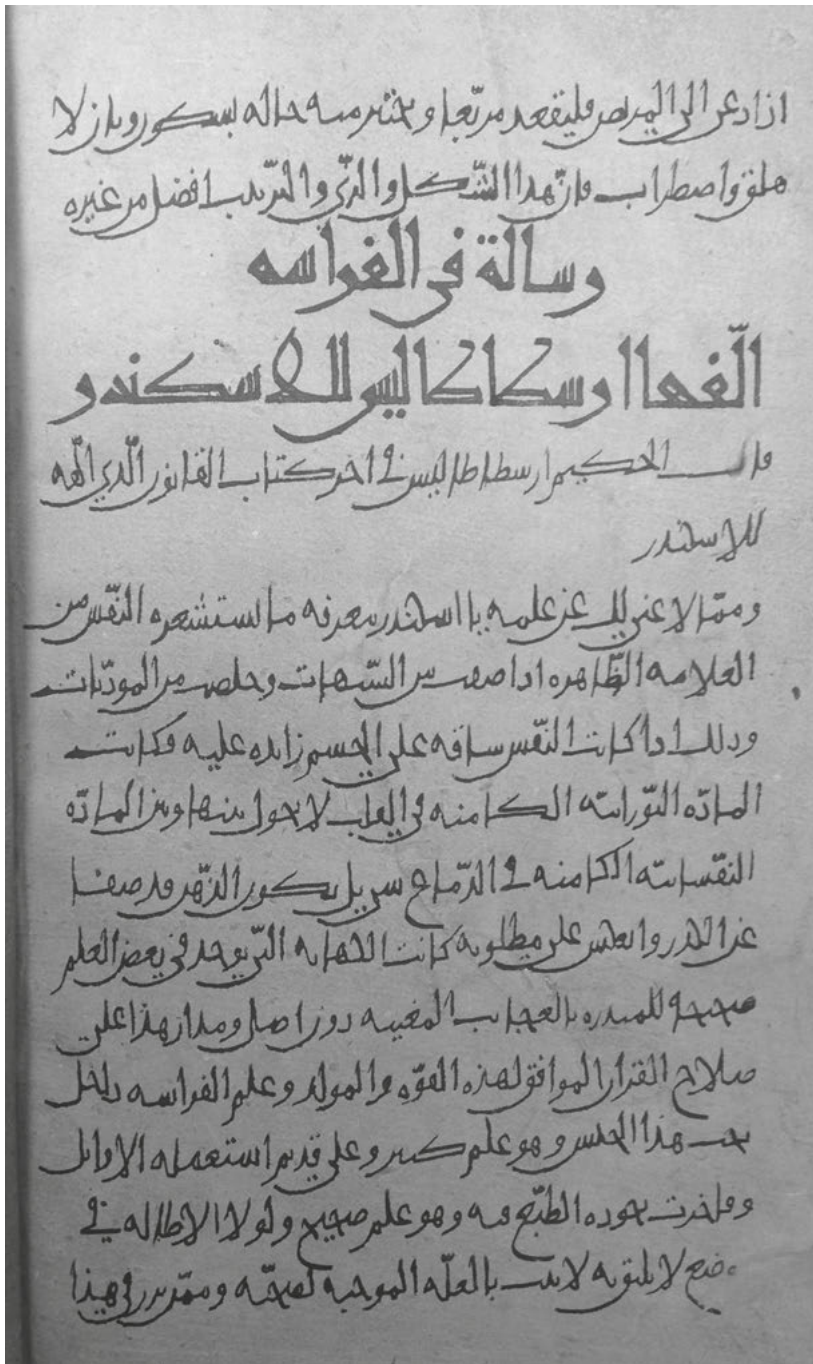 اذا دعى الى المريض فليقعد مربعا و حاله بسكون وبان لا
قلق واضطراب فان هذا الشّكل والزّي والترتيب افضل من غيره
رسالة في الفراسه
الّفها ارسطاطاليس للاسكندر
قال الحكيم ارسطاطاليس في اخر كتاب القانون الّذي الّفه
للاسكندر
وممّا لا غنى لك عن علمه يا اسكندر معرفه ما تستشعره النفّس من
العلامه الظّاهره اذا صفت من الشّهوات وخلصت من الموذيات
وذلك اذا كانت النفّس على الجسم زايده عليه فكانت
المادّه النوّرانيّه الكامنه في القلب لا يحول بينها وبين المادّه
النفّسانيّه الكامنه في الدّماغ يكون الذّهن قد صفا
عن الكدر على مطلوبه كانت الكهانه التّي توجد في بعض العلم
صحيحه بالعجايب المغيبه دون اصل ومدار هذا على
صلاح القران الموافق لهذه القوّه والمولد وعلم الفراسه داخل
تحت هذا الجنس وهو علم كبير وعلى قديم استعمله الاوايل
وفاخرت بجوده الطبّع فيه وهو علم صحيح ولولا الاطاله في
موضع لا يليق به لاتيت بالعلّه الموجبه لصحّته وممّن برز في هذا